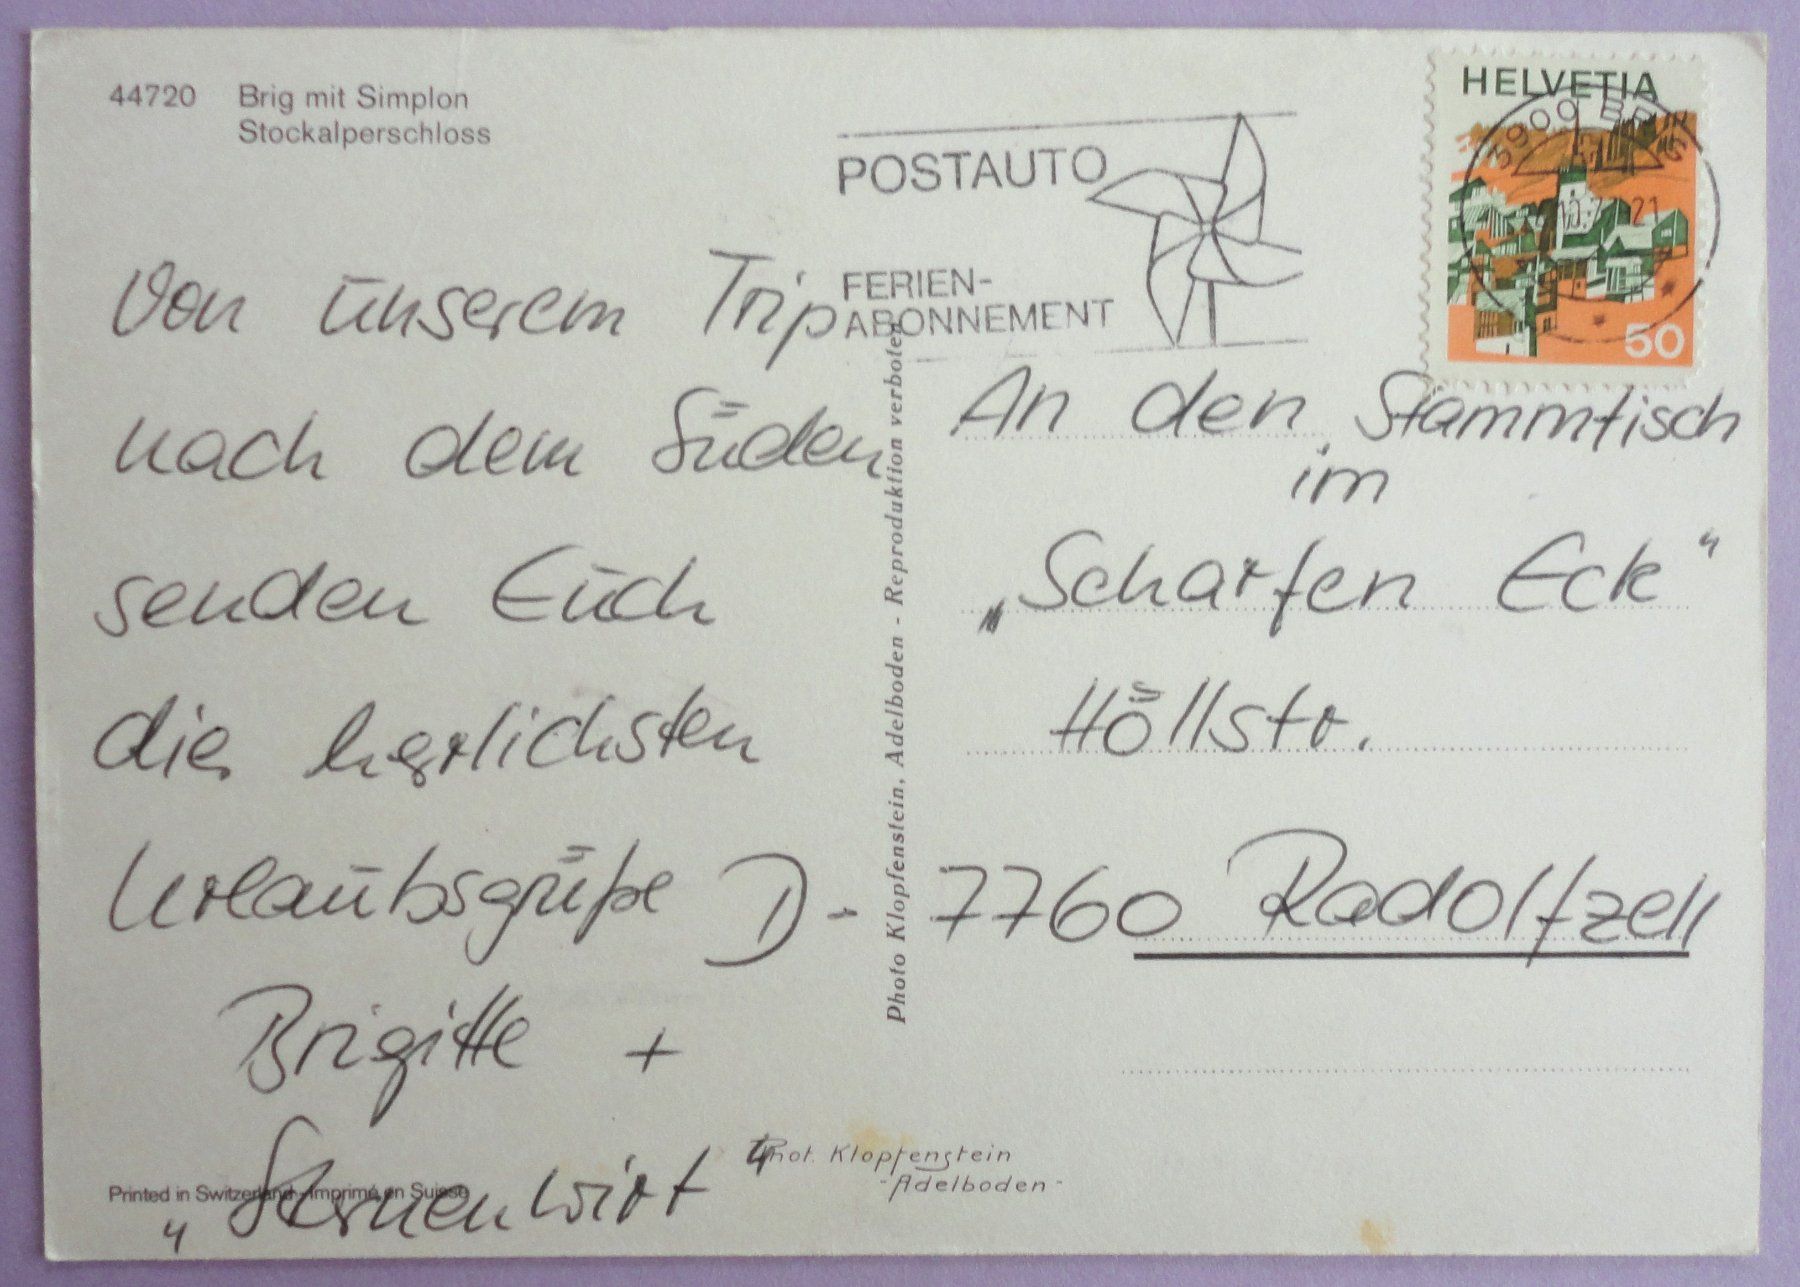 44720 Brig mit Simplon
Stockalperschloss
POSTAUTO
FERIEN-
ABONNEMENT
HELVETIA
3900 BRIG
50
Von unserem Trip
nach dem Süden
senden Euch
die herlichsten
Urlaubsgrüße
Brigitte +
„Sternenwirt"
An den Stammtisch
im
„Scharfen Eck"
Höllstr.
D-7760 Radolfzell
Photo Klopfenstein, Adelboden - Reproduktion verboten
Phot. Klopfenstein
-Adelboden-
Printed in Switzerland - Imprimé en Suisse